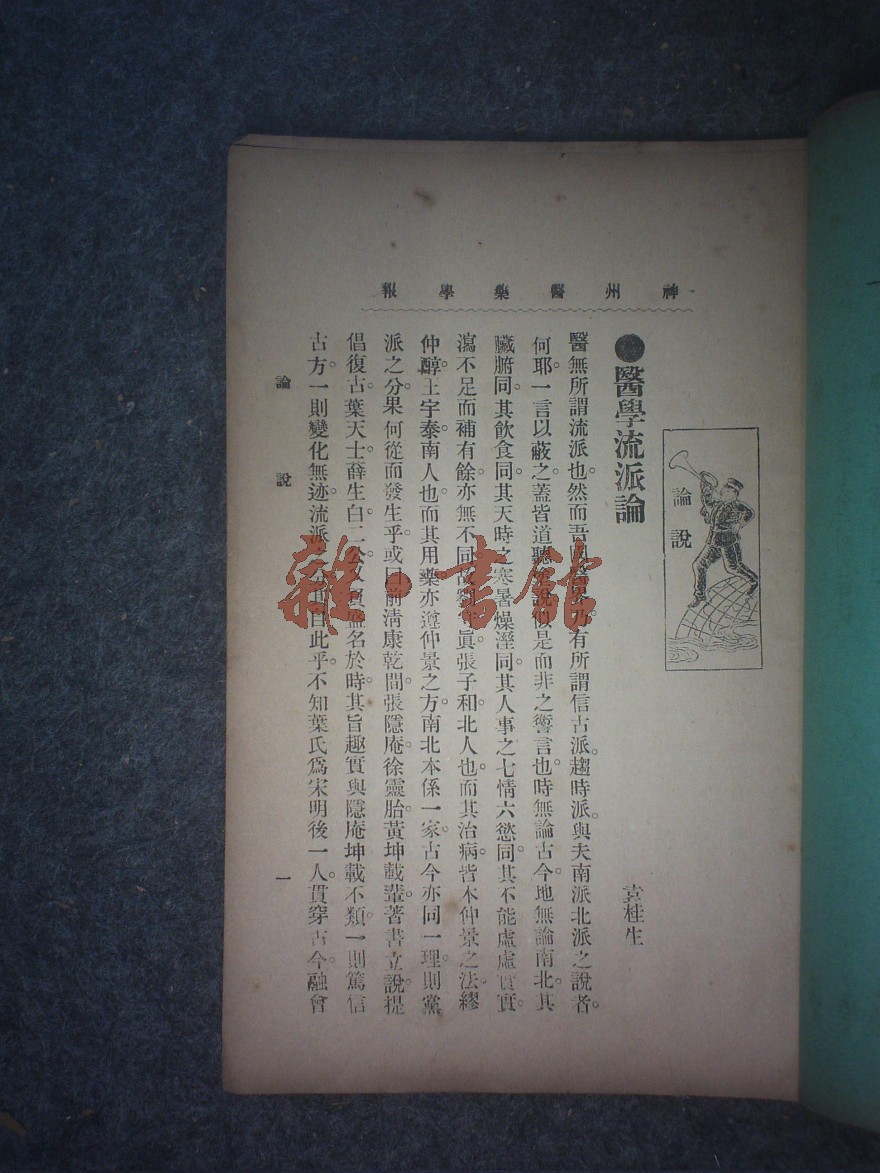 神州醫藥學報
論說
●醫學流派論
袁桂生
醫無所謂流派也。然而吾國醫界乃有所謂信古派。趨時派。與夫南派北派之說者。
何耶。一言以蔽之。蓋皆道聽塗說似是而非之讏言也。時無論古今。地無論南北。其
臟腑同。其飲食同。其天時之寒暑燥溼同。其人事之七情六慾同。其不能虛虛實實。
瀉不足而補有餘。亦無不同。故劉守眞。張子和。北人也。而其治病。皆本仲景之法。繆
仲醇。王宇泰。南人也。而其用藥。亦遵仲景之方。南北本係一家。古今亦同一理。則黨
派之分。果何從而發生乎。或曰前淸康乾間。張隱庵。徐靈胎。黃坤載輩。著書立說。提
倡復古。葉天士。薛生白。二公。又負盛名於時。其旨趣實與隱庵坤載不類。一則篤信
古方。一則變化無迹。流派之分其自此乎。不知葉氏爲宋明後一人。貫穿古今。融會
論說
一
雜·書館